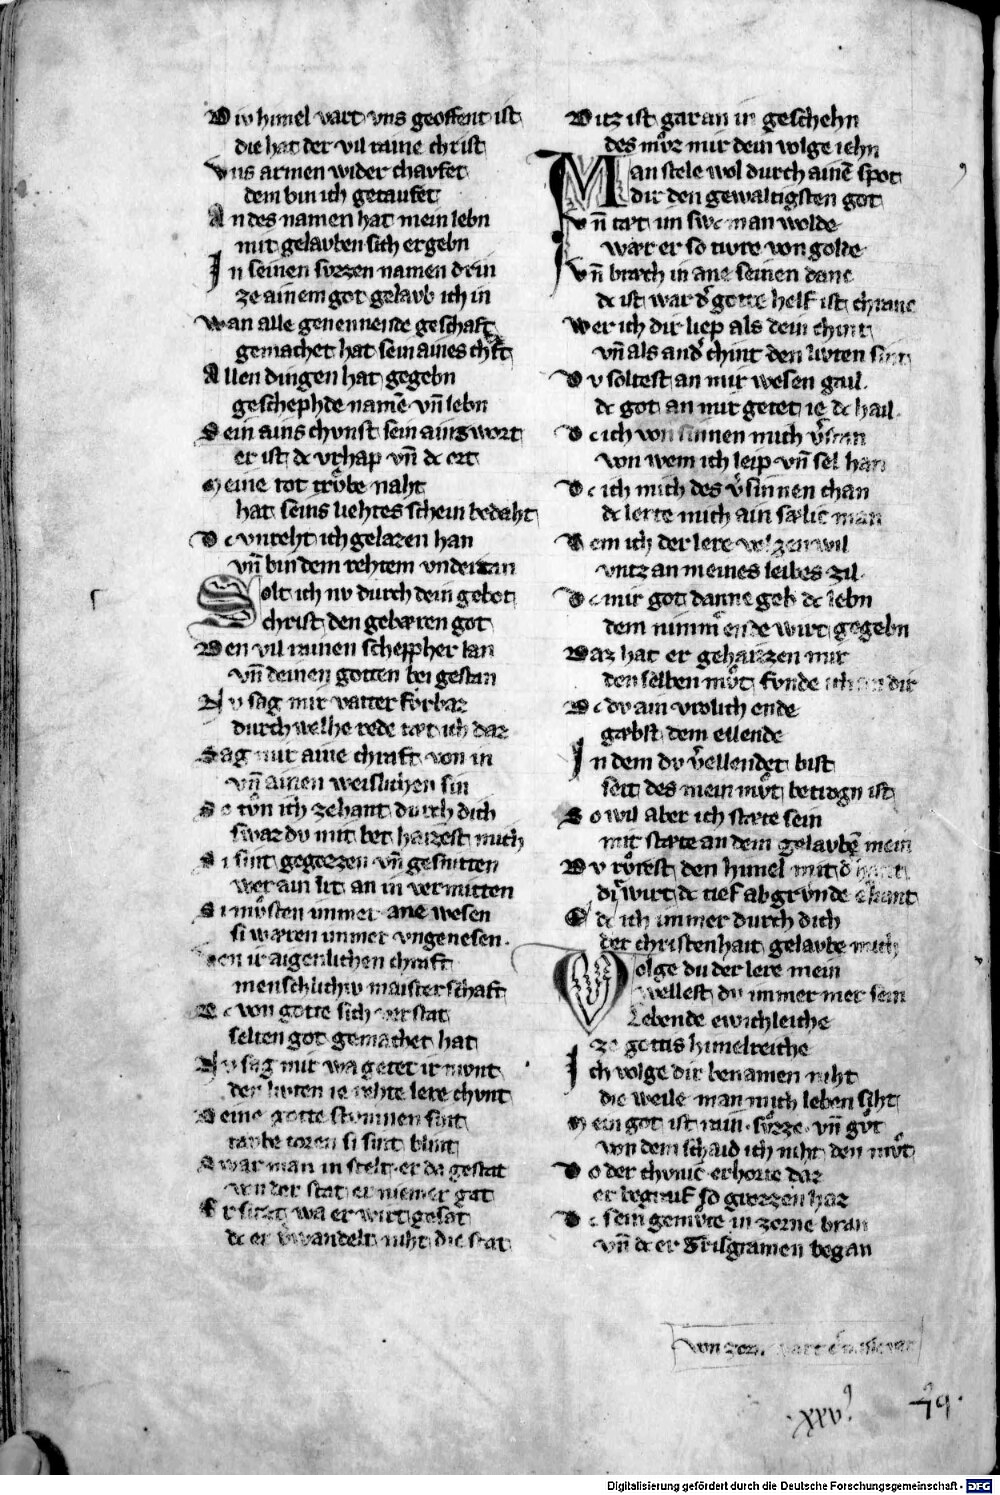 Div himel vart vns geoffent ist
die hat der vil raine christ
Vns armen wider chavfet
dem bin ich getaufet
An des namen hat mein lebn
mit gelavben sich ergebn
In seinen svzzen namen drin
ze ainem got gelavb ich in
Wan alle genennende geschaft
gemachet hat sein aines chͬft
Allen dingen hat gegebn
geschephde namē vn̄ lebn
Sein ains chvnst sein ains wort
er ist dc vrhap vn̄ dc ort
Meine tot trvͦbe naht
hat seins liehtes schein bedaht
Dc vnreht ich gelazen han
vn̄ bin dem rehtem vndertan
Solt ich nv durch dein gebot
christ den gebæren got
Den vil rainen schepher lan
vn̄ deinen gotten bei gestan
Nv sag mir vatter fvͦrbaz
durch welhe rede tæt ich daz
Sag mir aine chraft von in
vn̄ ainen weislichen sin
So tvͦn ich zehant durch dich
swaz dv mit bet haizest mich
Si sint gegozzen vn̄ gesnitten
wer ain lit an in vermitten
Si mvͦsten immer ane wesen
si wæren immer vngenesen.
Den ir aigenlichen chraft
menschlichiv maisterschaft
Dc von gotte sich verstat
selten got gemachet hat
Nv sag mir wa getet ir mvnt
der livten ie rehte lere chvnt
Deine gotte stvmmen sint
tavbe toren si sint blint
Swar man in stelt er da gestat
von der stat er niemer gat
Er sitzt wa er wirt gesat
dc er v̉wandelt niht die stat
Ditz ist gar an in geschehn
des mvͦz mir dein volge iehn
Man stele wol durch ainē spot
dir den gewaltigsten got
Vn̄ tæt im swc man wolde
wær er so tivre von golde
Vn̄ bræch in ane seinen danc
dc ist war d̉ gotte helf ist chranc
Wer ich dir liep als dein chint
vn̄ als and̉ chint den livten sint
Dv soltest an mir wesen gail.
dc got an mir getet ie dc hail.
Dc ich von sinnen mich v̉stan
von wem ich leip vn̄ sel han
Dc ich mich des v̉sinnen chan
dc lerte mich ain sælic man
Dem ich der lere volgen wil
vntz an meines leibes zil.
Dc mir got danne geb dc lebn
dem nimm̉ ende wirt gegebn
Daz hat er gehaizzen mir
den selben mvͦt fvnde ich an dir
Dc dv ain vrolich ende
gæbst dem ellende
In dem dv v̉ellendet bist
seit des mein mvͦt betrogn ist
So wil aber ich stæte sein
mit stæte an dem gelavbē mein
Dv rvͦrest den himel mit d̉ hant
dir wirt dc tief abgrvnde ẻkant
E dc ich immer durch dich
der christenhait gelavbe mich
Volge du der lere mein
wellest dv immer mer sein
Lebende ewichleiche
ze gottis himelreiche
Ich volge dir benamen niht
die weile man mich leben siht
Mein got ist rain. svͦzze vn̄ gvͦt
von dem schaid ich niht den mvͦt
Do der chvnic erhorte daz
er begraif so grozzen haz
Dc sein gemvͦte in zorne bran
vn̄ dc er Grisgramen began
von zorn wart
.xxvꝰ
79.
Digitalisierung gefördert durch die Deutsche Forschungsgemeinschaft - DFG